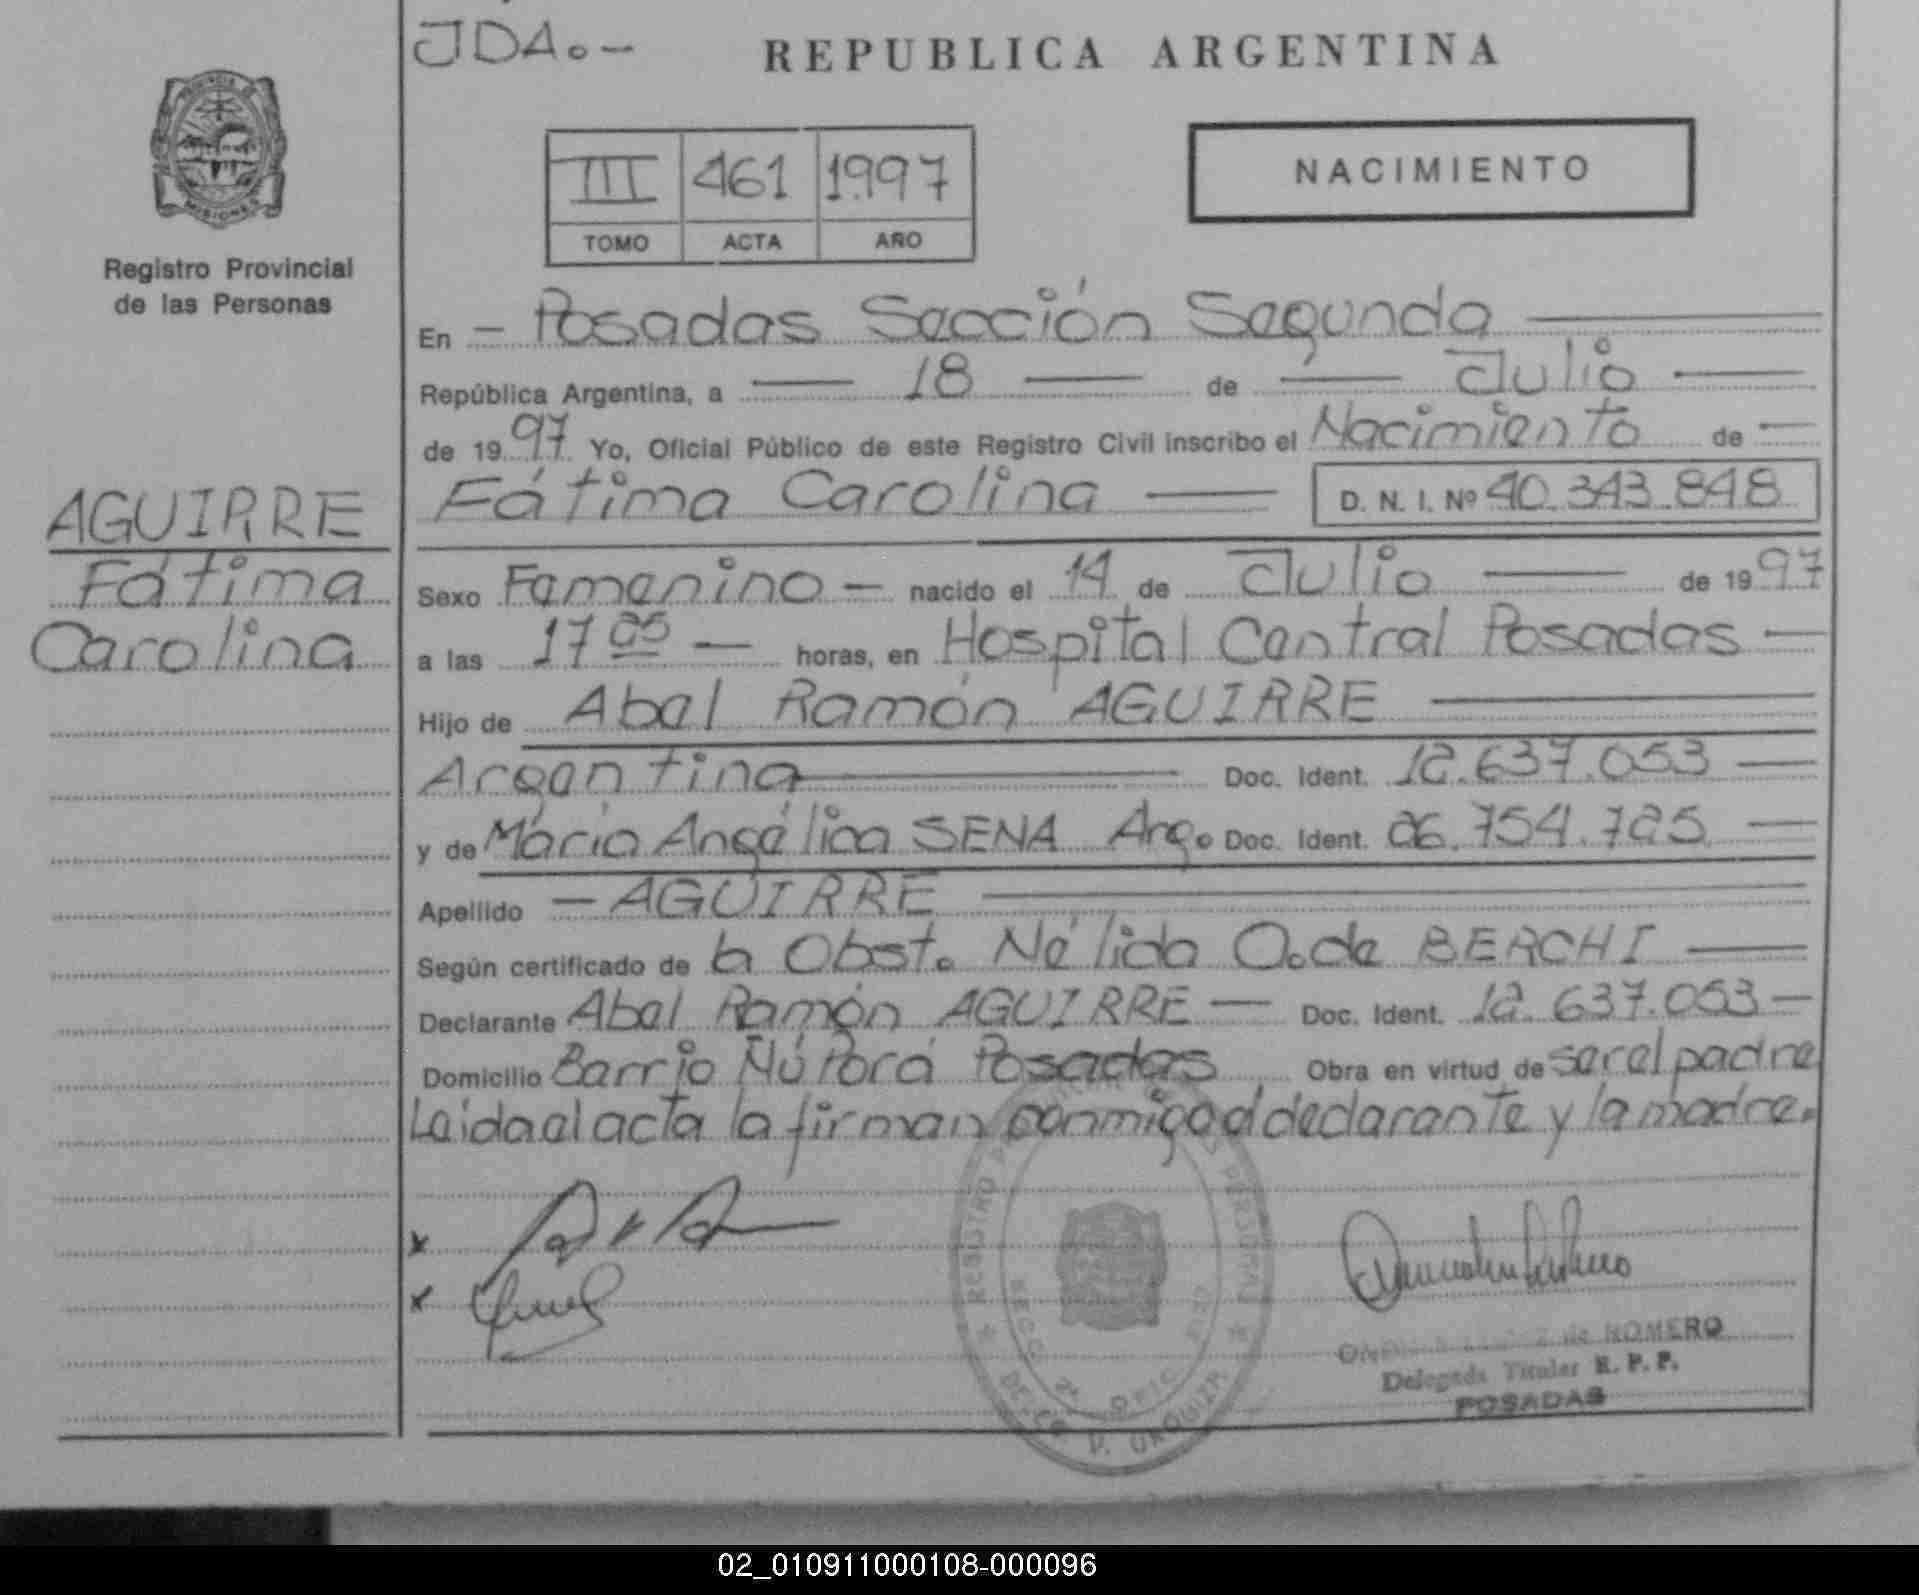 JDA.-
REPUBLICA ARGENTINA
PROVINCIA DE
MISIONES
Registro Provincial
de las Personas
III 461 1997
TOMO ACTA AÑO
NACIMIENTO
En - Posadas Sección Segunda
República Argentina, a 18 de Julio
de 1997 Yo, Oficial Público de este Registro Civil inscribo el Nacimiento de -
AGUIRRE
Fátima
Carolina
Fátima Carolina D. N. I. Nº 40.343.848
Sexo Femenino - nacido el 14 de Julio de 1997
a las 17 05 - horas, en Hospital Central Posadas -
Hijo de Abel Ramón AGUIRRE
Argentina Doc. Ident. 12.637.053 -
y de María Angélica SENA Arg. Doc. Ident. 26.754.725 -
Apellido - AGUIRRE
Según certificado de la Obst. Nélida O. de BERCHI
Declarante Abel Ramón AGUIRRE - Doc. Ident. 12.637.053 -
Domicilio Barrio Ñú Porá Posadas Obra en virtud de ser el padre
Leida el acta la firman conmigo el declarante y la madre.
x
x
de ROMERO
Delegada Titular R. P. P.
POSADAS
REGISTRO PERSONAS
SECC. 2ª OFIC.
URQUIZA
02_010911000108-000096